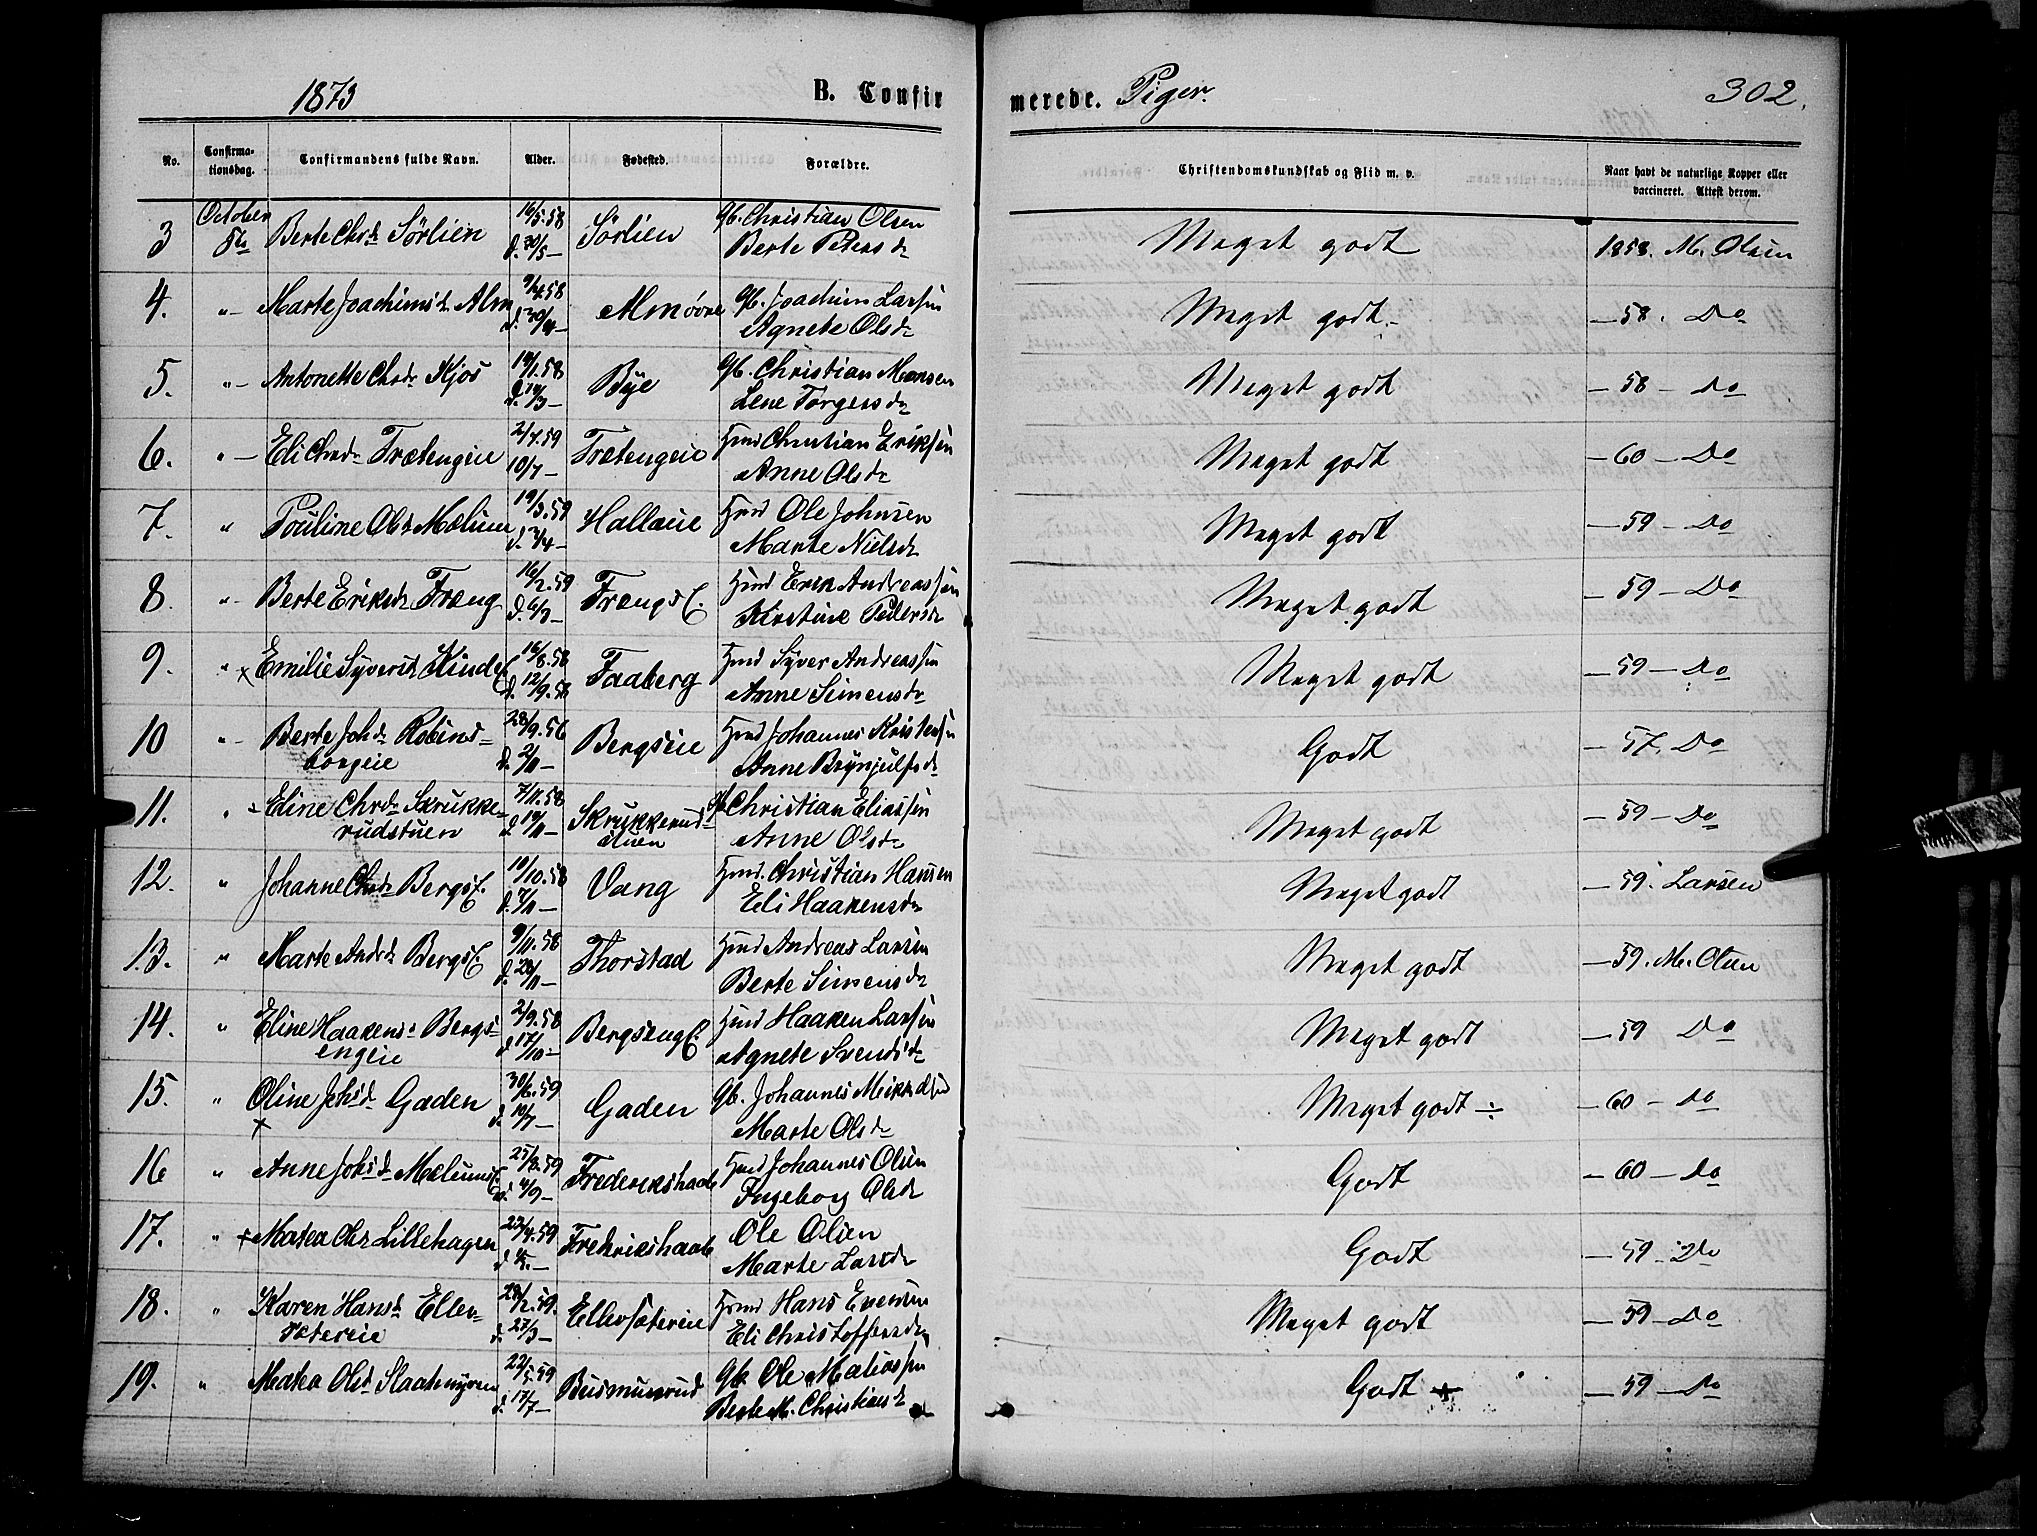 1873
B. Confirmerede. Piger.
302.
No.
Confirmationsdag.
Confirmandens fulde Navn.
Alder.
Fødested.
Forældre.
Christendomskundskab og Flid m. v.
Naar havt de naturlige Kopper eller vaccineret. Attest derom.
3 October 5te Berte Chrd. Sörlien 16/5.58 d. 30/5- Sörlien Gb. Christian Olsen Berte Petersdr Meget godt 1858. M. Olsen
4. "- Marte Joachimsd. Alm 9/4.58 d. 30/4- Almsøve Gb. Joachim Larsen Agnete Olsdr Meget godt - -58. Do
5. "- Antonette Chrdr Kjos 19/1.58 d. 14/3- Bye Gb. Christian Monsen Lene Torgersdr Meget godt -58- do
6. "- Eli Chrdr Trætengeie 2/7.59 10/7- Trætengeie Hmd Christian Eriksen Anne Olsdr Meget godt -60- Do
7. " Pouline Olsd Mælum 19/3.59 d. 3/4- Hallaeie Hmd Ole Johnsen Marte Nielsdr Meget godt -59- Do
8. "- Berte Eriksdr Fræng 16/2.59 d. 6/3- Frængs E. Hmd Erik Andreassen Kirstine Pedersdr Meget godt -59- Do
9. "- x Emilie Syversd. Kinde E. 16/8.58 d. 12/9.58 Faaberg Hmd Syver Andreassen Anne Simensdr Meget godt -59- Do
10 "- Berte Johd. Robinsborgeie 28/9.56 d. 2/11- Bergseie Hmd Johannes Kristensen Anne Brynjulfsdr Godt -57. Do
11. "- Eline Chrdr Skrukkerudstuen 7/11.58 d. 14/11- Skrukkerudstuen Gb Christian Eliassen Anne Olsdr Meget godt -59- Do
12. " Johanne Chrdr Bergs E. 10/10.58 d. 7/11- Vang Hmd. Christian Hansen Eli Haakensdr Meget godt -59. Larsen
13. " Marte Andrd. Bergs E 9/11.58 d. 28/11- Thorstad Hmd Andreas Larsen Berte Simensdr Meget godt -59. M. Olsen
14. " Eline Haakensd Bergsengeie 2/9.58 d. 17/10- Bergseng E. Hmd Haaken Larsen Agnete Svendsd. Meget godt -59 Do
15. " Oline Johsd. Gaden x 30/6.59 d. 10/7- Gaden Gb. Johannes Mikkelsen Marte Olsdr Meget godt ÷ -60- do
16 " Anne Johsd. Mælums E 25/8.59 d. 4/9- Frederikshaab Hmd Johannes Olsen Ingeborg Olsdr Godt -60- do
17. "- x Matea Olsd Lillehagen 22/4.59 Fredrikshaab Ole Olsen Marte Larsdr Godt -59- Do
18. " Karen Hansd. Ellevsætereie 28/2.59. d. 27/3- Ellevsætereie Hmd Hans Evensen Eli Christoffersdr Meget godt -59- Do
19. " Matea Olsd. Slaatmyren 22/5.59 d. 17/7- Busmunrud Gb. Ole Matiassen Berte M. Christiansd. Godt + -59- Do